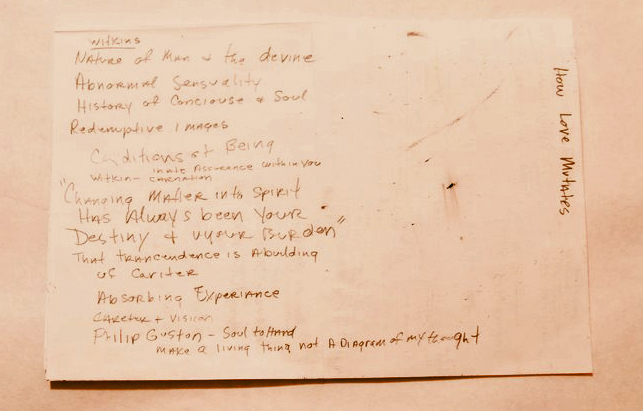 Witkins
Nature of Man + the devine
Abnormal Sensuality
History of Conciouse + Soul
Redemptive Images
Conditions of Being
inate Assurance within you
Witkin- carnation
"Changing Matter into Spirit
Has Always been Your
Destiny + your Burden"
That trancendence is A building
of Cariter
Absorbing Experiance
Careter + Vision
Philip Guston - Soul to Hand
make a living thing not A Diagram of my thought
How Love Mutates